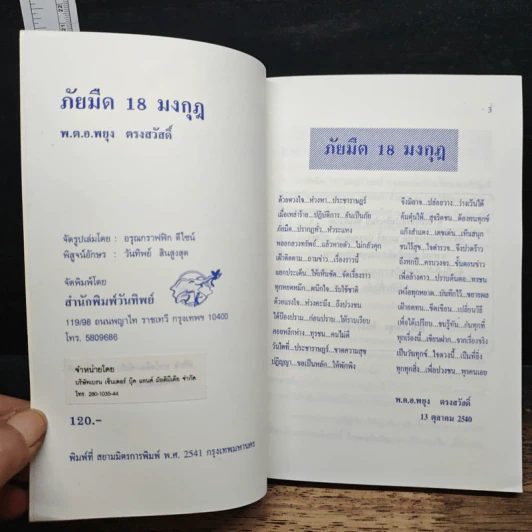 ภัยมืด 18 มงกุฎ
พ.ต.อ.พยุง ตรงสวัสดิ์
จัดรูปเล่มโดย : อรุณกราฟฟิก ดีไซน์
พิสูจน์อักษร : วันทิพย์ สินสูงสุด
จัดพิมพ์โดย
สำนักพิมพ์วันทิพย์
119/98 ถนนพญาไท ราชเทวี กรุงเทพฯ 10400
โทร. 5809686
จำหน่ายโดย
บริษัทเบรน เซ็นเตอร์ บุ๊ค แอนด์ มัลติมีเดีย จำกัด
โทร. 280-1035-44
120.-
พิมพ์ที่ สยามมิตรการพิมพ์ พ.ศ. 2541 กรุงเทพมหานคร
3
ภัยมืด 18 มงกุฎ
ด้วยดวงใจ...ห่วงหา...ประชาราษฎร์
เมื่อเหล่าร้าย...ปฏิบัติการ...อันเป็นภัย
ภัยมืด...ปรากฏทั่ว...หัวระแหง
หลอกลวงทรัพย์...แล้วหายตัว...ไม่กลัวคุก
เฝ้าติดตาม...ถามข่าว...เรื่องราวนี้
แยกประเด็น...ให้เห็นชัด...จัดเรื่องราว
ทุกหยดหมึก...ผนึกใจ...รับใช้ชาติ
ด้วยแรงใจ...ห่วงคะนึง...ถึงปวงชน
ได้ป้องปราม...ก่อนปราบ...ให้ราบเรียบ
คอยหลีกห่าง...ทุรชน...คนไม่ดี
วันใดที่...ประชาราษฎร์...ขาดความสุข
ปฏิญญา...ขอเป็นหลัก...ให้พักพิง
จึงมิอาจ...ปล่อยวาง...ว่างเว้นได้
คุ้มคุ้นให้...สุจริตชน...ต้องทนทุกข์
ชนไว้สุข...ใจดำรง...จึงปวดร้าว
ถึงหกปี...ครบวงจร...ขั้นตอนข่าว
เพื่อล้างคาว...ปราบคืนตอ...พงชน
เพื่อได้เปรียบ...ชนรู้ทัน...กันทุกที่
เป็นวันทุกข์...ใจดวงนี้...เป็นที่ยิ่ง
ทุกทุกสิ่ง...เพื่อปวงชน...ทุกคนเอย
พ.ต.อ.พยุง ตรงสวัสดิ์
13 ตุลาคม 2540